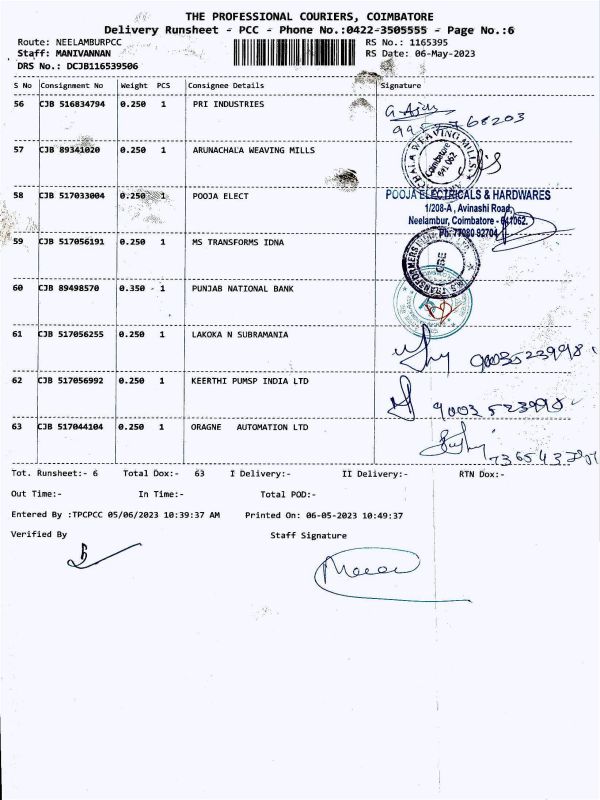 THE PROFESSIONAL COURIERS, COIMBATORE
Delivery Runsheet - PCC - Phone No.:0422-3505555 - Page No.:6
Route: NEELAMBURPCC RS No.: 1165395
Staff: MANIVANNAN RS Date: 06-May-2023
DRS No.: DCJB116539506
S No Consignment No Weight PCS Consignee Details Signature
56 CJB 516834794 0.250 1 PRI INDUSTRIES
68203
57 CJB 89341020 0.250 1 ARUNACHALA WEAVING MILLS
WEAVING MILLS
Coimbatore
641 062
58 CJB 517033004 0.250 1 POOJA ELECT
POOJA ELECTRICALS & HARDWARES
1/208-A, Avinashi Road,
Neelambur, Coimbatore - 641062.
Ph: 77080 92704
59 CJB 517056191 0.250 1 MS TRANSFORMS IDNA
M.S TRANSFORMERS
CBE
60 CJB 89498570 0.350 - 1 PUNJAB NATIONAL BANK
61 CJB 517056255 0.250 1 LAKOKA N SUBRAMANIA
9003523998
62 CJB 517056992 0.250 1 KEERTHI PUMSP INDIA LTD
9003523998
63 CJB 517044104 0.250 1 ORAGNE AUTOMATION LTD
Tot. Runsheet:- 6 Total Dox:- 63 I Delivery:- II Delivery:- RTN Dox:-
Out Time:- In Time:- Total POD:-
Entered By :TPCPCC 05/06/2023 10:39:37 AM Printed On: 06-05-2023 10:49:37
Verified By Staff Signature